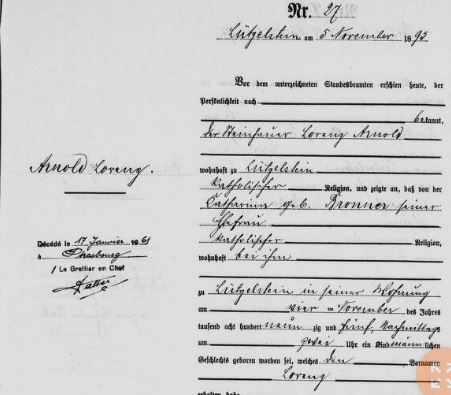 Nr. 27
Lützelstein am 5 November 1895
Vor dem unterzeichneten Standesbeamten erschien heute, der
Persönlichkeit nach
bekannt,
der Steinhauer Lorenz Arnold
wohnhaft zu Lützelstein
katholischer Religion, und zeigte an, daß von der
Catharina geb. Bronner seiner
Ehefrau
katholischer Religion,
wohnhaft bei ihm
zu Lützelstein in seiner Wohnung
am vier ten November des Jahres
tausend acht hundert neun zig und fünf, Nachmittags
um zwei Uhr ein Kind männlichen
Geschlechts geboren worden sei, welches den Vornamen
Lorenz
erhalten habe.
Arnold Lorenz.
Décédé le 17 Janvier 1961
à Strasbourg
Le Greffier en Chef